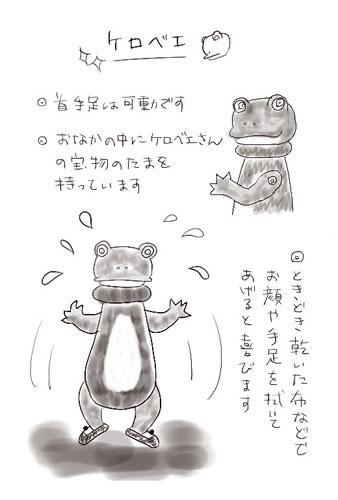 ケロベエ
◎ 首手足は可動です
◎ おなかの中にケロベエさん
の宝物のたまを
持っています
◎ ときどき乾いた布などで
お顔や手足を拭いて
あげると喜びます